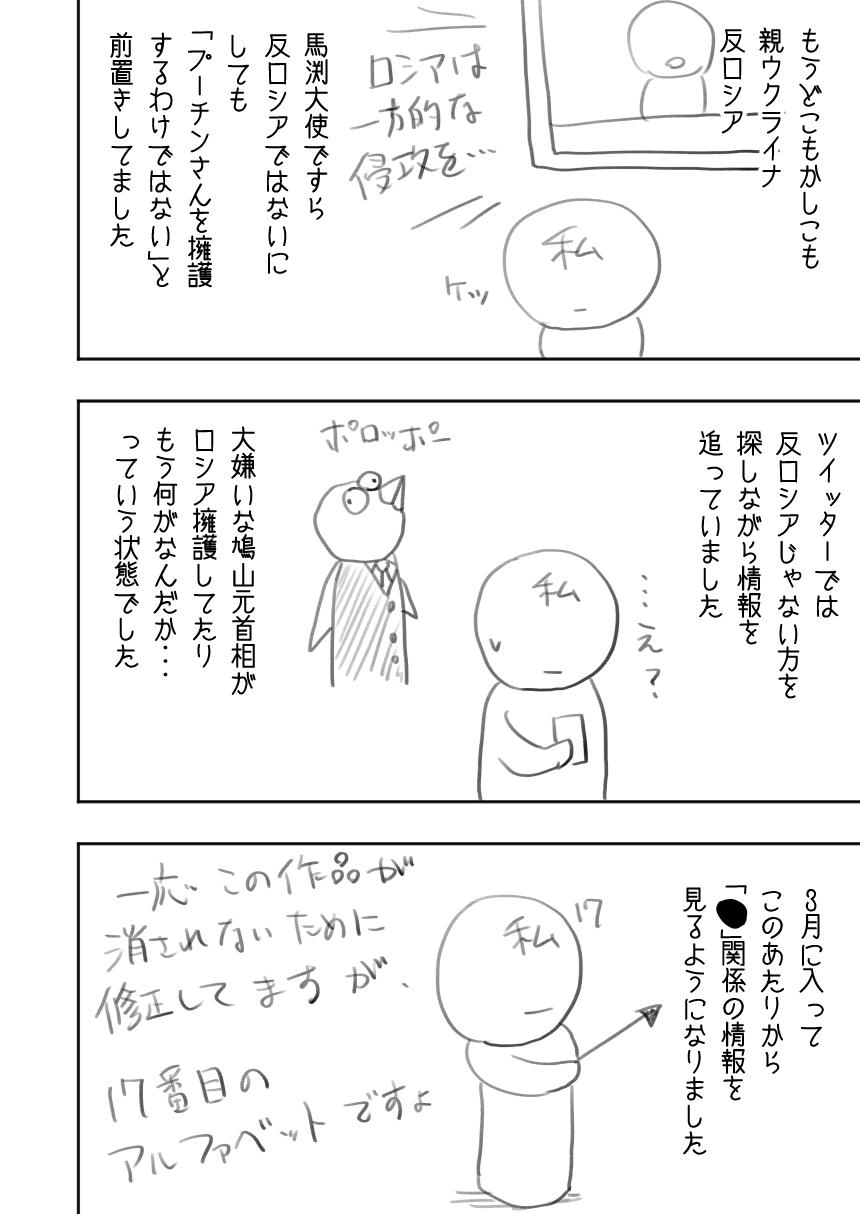 もうどこもかしこも
親ウクライナ
反ロシア
ロシアは
一方的な
侵攻を…
私
ケッ
馬渕大使ですら
反ロシアではないに
しても
「プーチンさんを擁護
するわけではない」と
前置きしてました
ツイッターでは
反ロシアじゃない方を
探しながら情報を
追っていました
…え?
私
ポロッポー
大嫌いな鳩山元首相が
ロシア擁護してたり
もう何がなんだか・・・
っていう状態でした
3月に入って
このあたりから
「●」関係の情報を
見るようになりました
17
私
一応この作品が
消されないために
修正してますが、
17番目の
アルファベットですよ